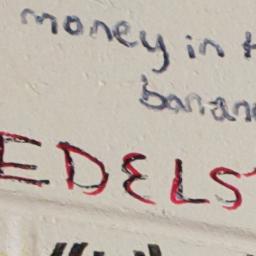 money in t
banan
EDELS